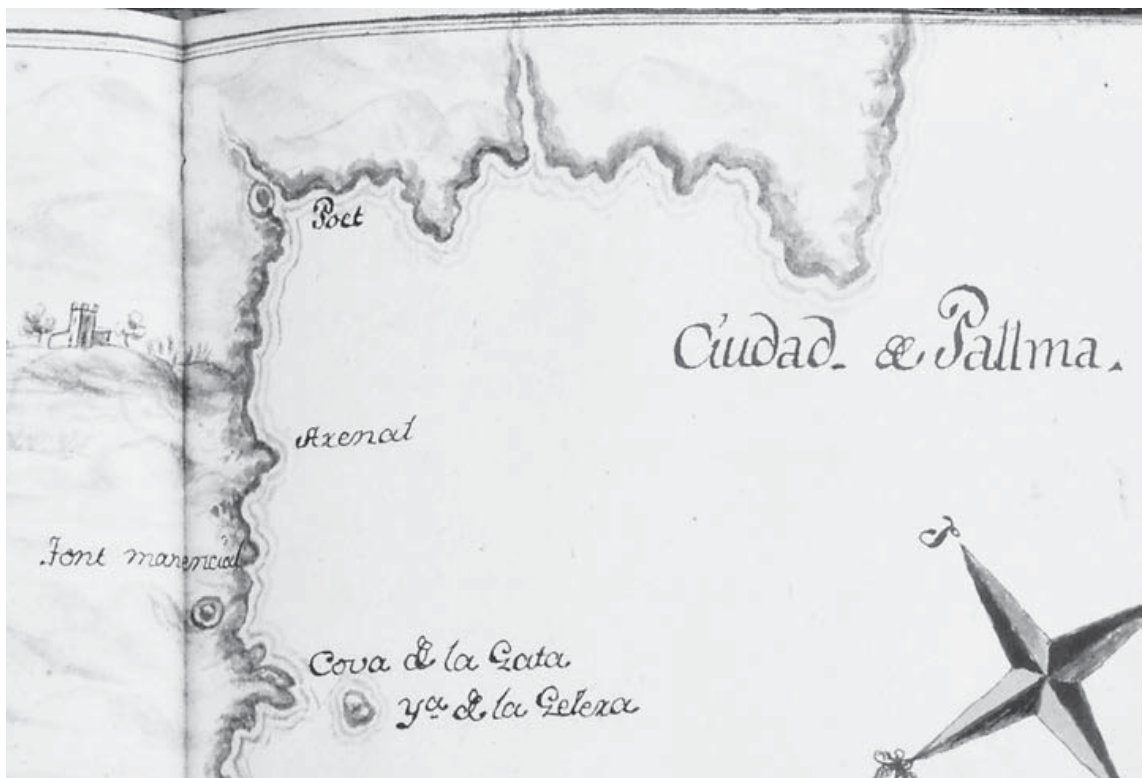 Poet
Ciudad. de Pallma.
Arenal
Font marencial
Cova de la Gata
yª de la Geleza